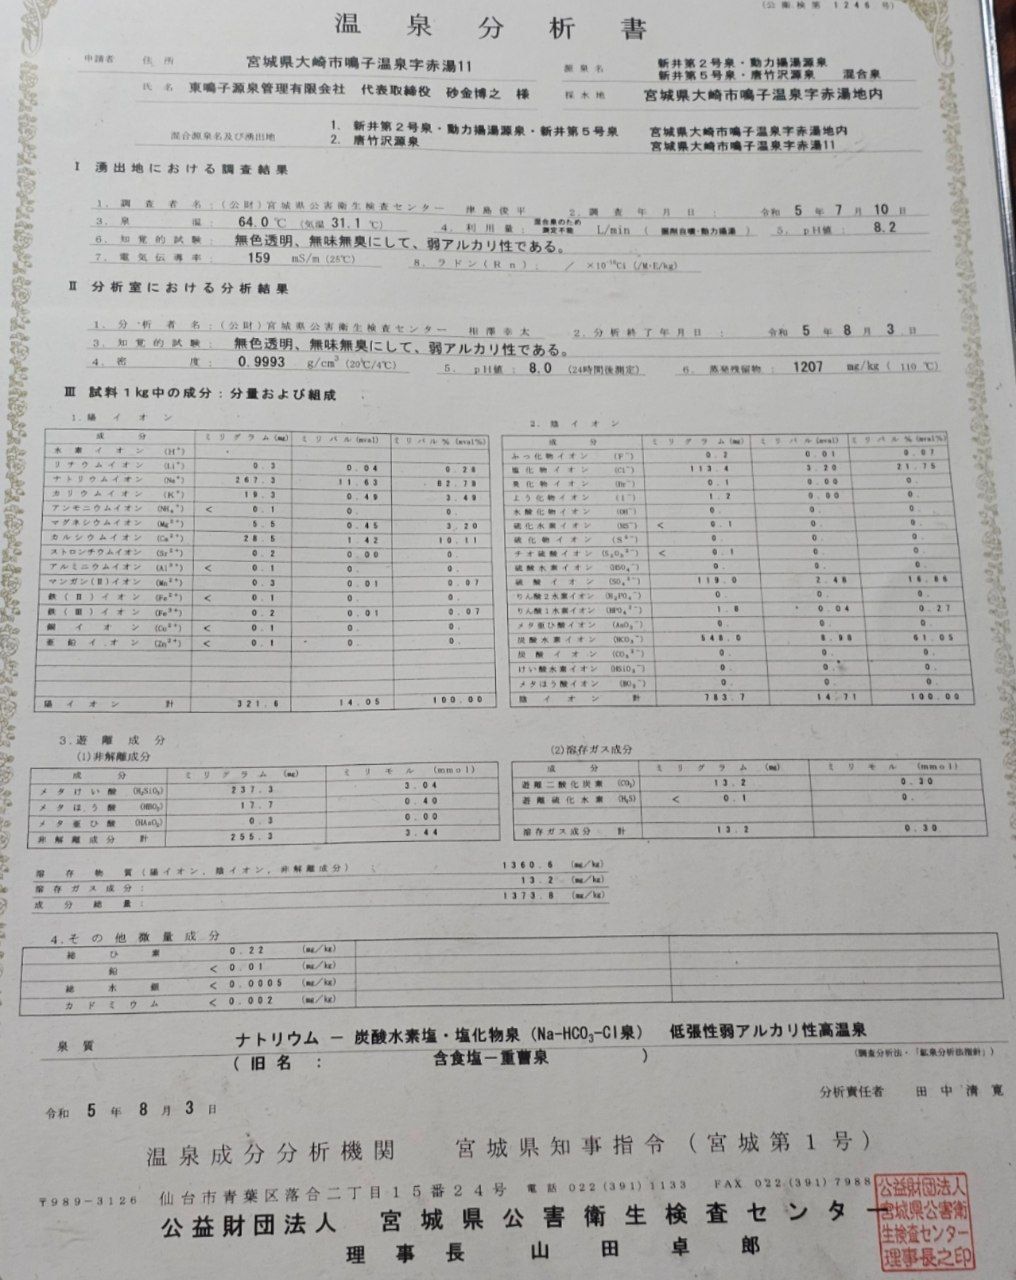 (公衛検第 1246 号)
温泉分析書
申請者 住所 宮城県大崎市鳴子温泉字赤湯11
源泉名 新井第2号泉・動力揚湯源泉
新井第5号泉・唐竹沢源泉 混合泉
氏名 東鳴子源泉管理有限会社 代表取締役 砂金博之 様
採水地 宮城県大崎市鳴子温泉字赤湯地内
混合源泉名及び湧出地
1. 新井第2号泉・動力揚湯源泉・新井第5号泉 宮城県大崎市鳴子温泉字赤湯地内
2. 唐竹沢源泉 宮城県大崎市鳴子温泉字赤湯11
Ⅰ 湧出地における調査結果
1. 調査者名:(公財)宮城県公害衛生検査センター 津島俊平 2. 調査年月日: 令和 5 年 7 月 10 日
3. 泉温: 64.0 ℃ (気温 31.1 ℃) 4. 利用量: 混合泉のため測定不能 L/min ( 掘削自噴・動力揚湯 ) 5. pH値: 8.2
6. 知覚的試験: 無色透明、無味無臭にして、弱アルカリ性である。
7. 電気伝導率: 159 mS/m (25℃) 8. ラドン(Rn): / ×10⁻¹⁰Ci (/M・E/kg)
Ⅱ 分析室における分析結果
1. 分析者名:(公財)宮城県公害衛生検査センター 相澤幸太 2. 分析終了年月日: 令和 5 年 8 月 3 日
3. 知覚的試験: 無色透明、無味無臭にして、弱アルカリ性である。
4. 密度: 0.9993 g/cm³ (20℃/4℃) 5. pH値: 8.0 (24時間後測定) 6. 蒸発残留物: 1207 mg/kg ( 110 ℃)
Ⅲ 試料1kg中の成分:分量および組成
1. 陽イオン
成分 ミリグラム(mg) ミリバル(mval) ミリバル%(mval%)
水素イオン (H⁺)
リチウムイオン (Li⁺) 0.3 0.04 0.28
ナトリウムイオン (Na⁺) 267.3 11.63 82.78
カリウムイオン (K⁺) 19.3 0.49 3.49
アンモニウムイオン (NH₄⁺) < 0.1 0. 0.
マグネシウムイオン (Mg²⁺) 5.5 0.45 3.20
カルシウムイオン (Ca²⁺) 28.5 1.42 10.11
ストロンチウムイオン (Sr²⁺) 0.2 0.00 0.
アルミニウムイオン (Al³⁺) < 0.1 0. 0.
マンガン(Ⅱ)イオン (Mn²⁺) 0.3 0.01 0.07
鉄(Ⅱ)イオン (Fe²⁺) < 0.1 0. 0.
鉄(Ⅲ)イオン (Fe³⁺) 0.2 0.01 0.07
銅イオン (Cu²⁺) < 0.1 0. 0.
亜鉛イオン (Zn²⁺) < 0.1 0. 0.
陽イオン計 321.6 14.05 100.00
2. 陰イオン
成分 ミリグラム(mg) ミリバル(mval) ミリバル%(mval%)
ふっ化物イオン (F⁻) 0.2 0.01 0.07
塩化物イオン (Cl⁻) 113.4 3.20 21.75
臭化物イオン (Br⁻) 0.1 0.00 0.
よう化物イオン (I⁻) 1.2 0.00 0.
水酸化物イオン (OH⁻) 0. 0. 0.
硫化水素イオン (HS⁻) < 0.1 0. 0.
硫化物イオン (S²⁻) 0. 0. 0.
チオ硫酸イオン (S₂O₃²⁻) < 0.1 0. 0.
硫酸水素イオン (HSO₄⁻) 0. 0. 0.
硫酸イオン (SO₄²⁻) 119.0 2.48 16.86
りん酸2水素イオン (H₂PO₄⁻) 0. 0. 0.
りん酸1水素イオン (HPO₄²⁻) 1.8 0.04 0.27
メタ亜ひ酸イオン (AsO₂⁻) 0. 0. 0.
炭酸水素イオン (HCO₃⁻) 548.0 8.98 61.05
炭酸イオン (CO₃²⁻) 0. 0. 0.
けい酸水素イオン (HSiO₃⁻) 0. 0. 0.
メタほう酸イオン (BO₂⁻) 0. 0. 0.
陰イオン計 783.7 14.71 100.00
3. 遊離成分
(1)非解離成分
成分 ミリグラム(mg) ミリモル(mmol)
メタけい酸 (H₂SiO₃) 237.3 3.04
メタほう酸 (HBO₂) 17.7 0.40
メタ亜ひ酸 (HAsO₂) 0.3 0.00
非解離成分計 255.3 3.44
(2)溶存ガス成分
成分 ミリグラム(mg) ミリモル(mmol)
遊離二酸化炭素 (CO₂) 13.2 0.30
遊離硫化水素 (H₂S) < 0.1 0.
溶存ガス成分計 13.2 0.30
溶存物質(陽イオン, 陰イオン, 非解離成分): 1360.6 (mg/kg)
溶存ガス成分: 13.2 (mg/kg)
成分総量: 1373.8 (mg/kg)
4. その他微量成分
総ひ素 0.22 (mg/kg)
鉛 < 0.01 (mg/kg)
総水銀 < 0.0005 (mg/kg)
カドミウム < 0.002 (mg/kg)
泉質 ナトリウム - 炭酸水素塩・塩化物泉 (Na-HCO₃-Cl泉) 低張性弱アルカリ性高温泉
(旧名: 含食塩-重曹泉 )
(調査分析法・「鉱泉分析法指針」)
分析責任者 田中清寛
令和 5 年 8 月 3 日
温泉成分分析機関 宮城県知事指令(宮城第1号)
〒989-3126 仙台市青葉区落合二丁目15番24号 電話 022(391)1133 FAX 022(391)7988
公益財団法人 宮城県公害衛生検査センター
理事長 山田卓郎
公益財団法人
宮城県公害衛
生検査センター
理事長之印